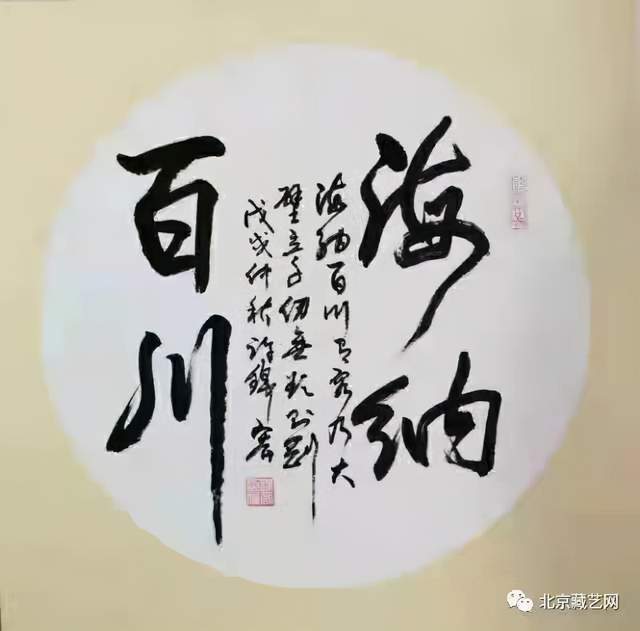 海纳
百川
海纳百川有容乃大
壁立千仞無欲则刚
戊戌仲秋许锋
北京藏艺网